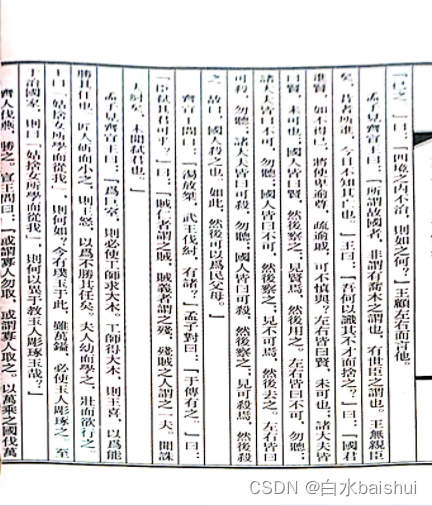 「已之。」曰：「四境之內不治，則如之何？」王顧左右而言他。
孟子見齊宣王曰：「所謂故國者，非謂有喬木之謂也，有世臣之謂也。王無親臣
矣，昔者所進，今日不知其亡也。」王曰：「吾何以識其不才而舍之？」曰：「國君
進賢，如不得已，將使卑踰尊，疏踰戚，可不慎與？左右皆曰賢，未可也；諸大夫皆
曰賢，未可也；國人皆曰賢，然後察之；見賢焉，然後用之。左右皆曰不可，勿聽；
諸大夫皆曰不可，勿聽；國人皆曰不可，然後察之；見不可焉，然後去之。左右皆曰
可殺，勿聽；諸大夫皆曰可殺，勿聽；國人皆曰可殺，然後察之；見可殺焉，然後殺
之。故曰，國人殺之也。如此，然後可以為民父母。」
齊宣王問曰：「湯放桀，武王伐紂，有諸？」孟子對曰：「于傳有之。」曰：
「臣弒其君可乎？」曰：「賊仁者謂之賊，賊義者謂之殘，殘賊之人謂之一夫。聞誅
一夫紂矣，未聞弒君也。」
孟子見齊宣王曰：「為巨室，則必使工師求大木。工師得大木，則王喜，以為能
勝其任也。匠人斲而小之，則王怒，以為不勝其任矣。夫人幼而學之，壯而欲行之。
王曰『姑舍女所學而從我』，則何如？今有璞玉于此，雖萬鎰，必使玉人彫琢之。至
于治國家，則曰『姑舍女所學而從我』，則何以異于教玉人彫琢玉哉？」
齊人伐燕，勝之。宣王問曰：「或謂寡人勿取，或謂寡人取之。以萬乘之國伐萬
CSDN @白水baishui